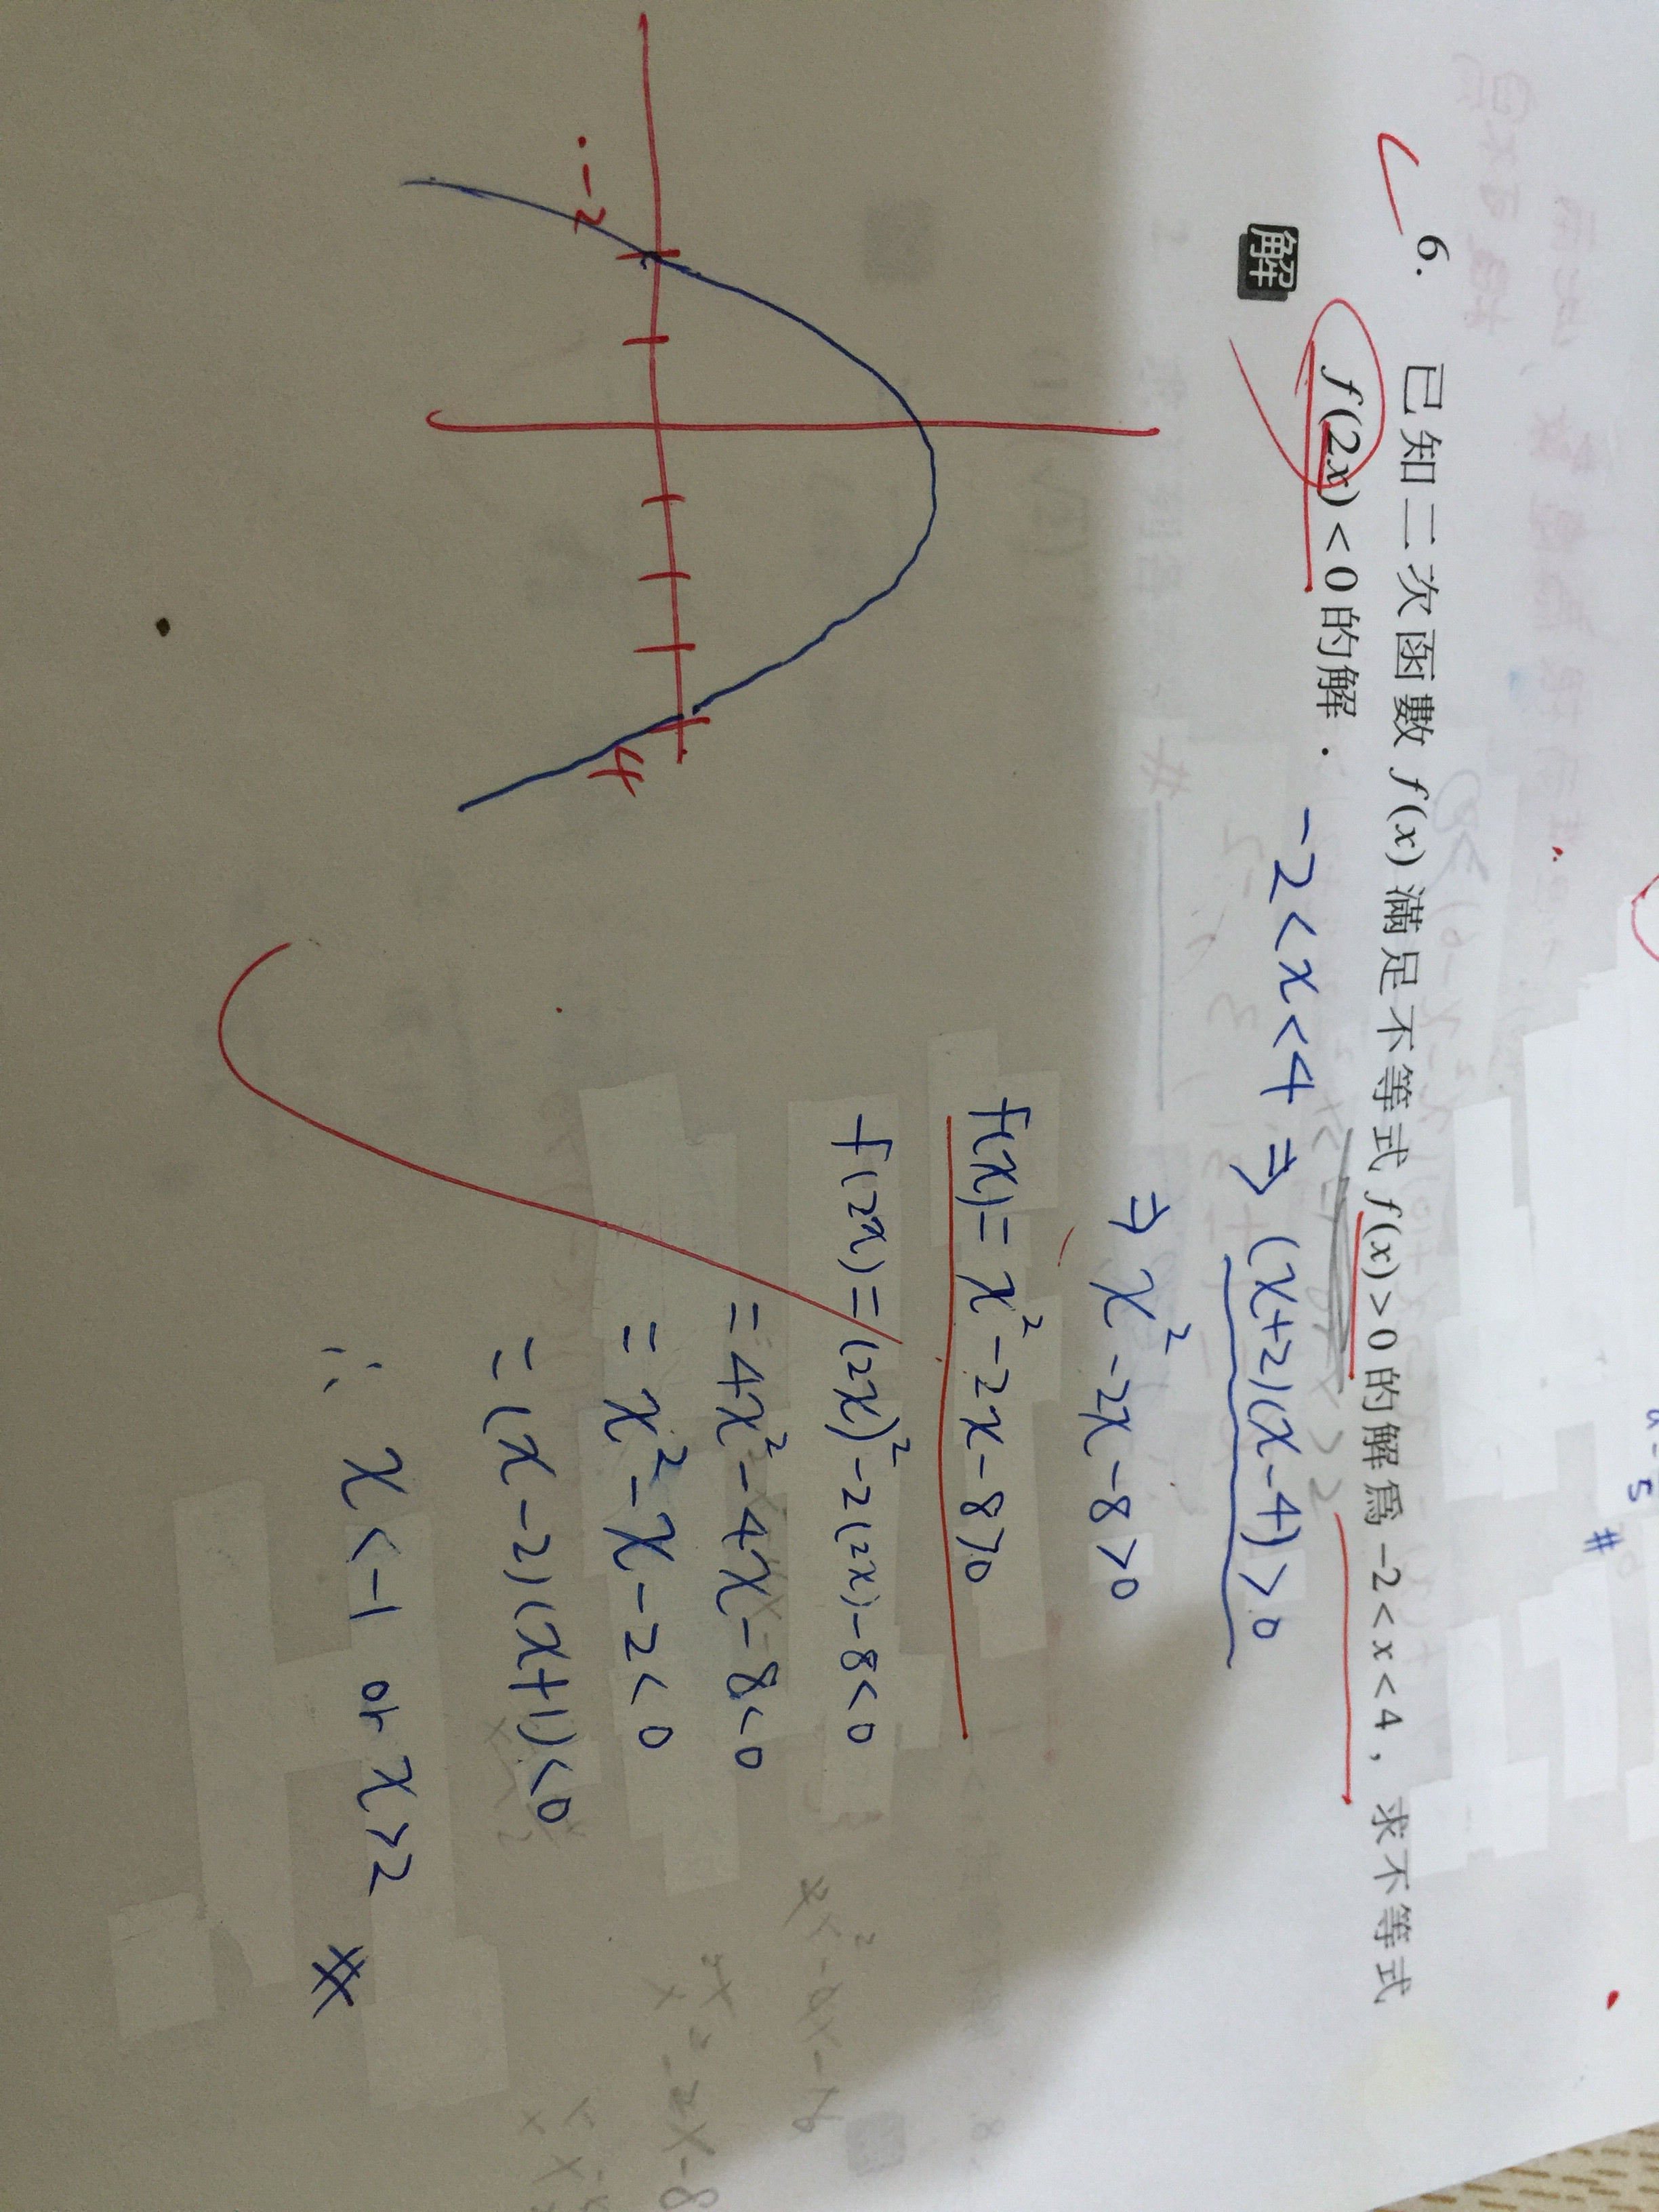 6. 已知二次函數 f(x) 滿足不等式 f(x)>0 的解為 -2<x<4，求不等式
f(2x)<0 的解．
解
-2<x<4 ⇒ (x+2)(x-4)>0
⇒ x²-2x-8>0
f(x)=x²-2x-8>0
f(2x)=(2x)²-2(2x)-8<0
=4x²-4x-8<0
=x²-x-2<0
=(x-2)(x+1)<0
∴ x<-1 or x>2 #
-2
4